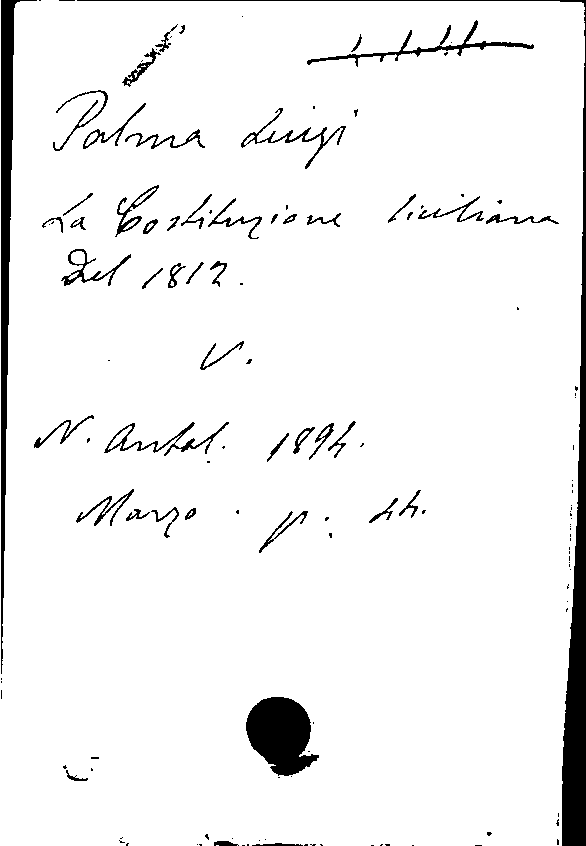 Palma Luigi
La Costituzione Siciliana
Del 1812.
V.
N. Antol. 1894.
Marzo. p. 44.